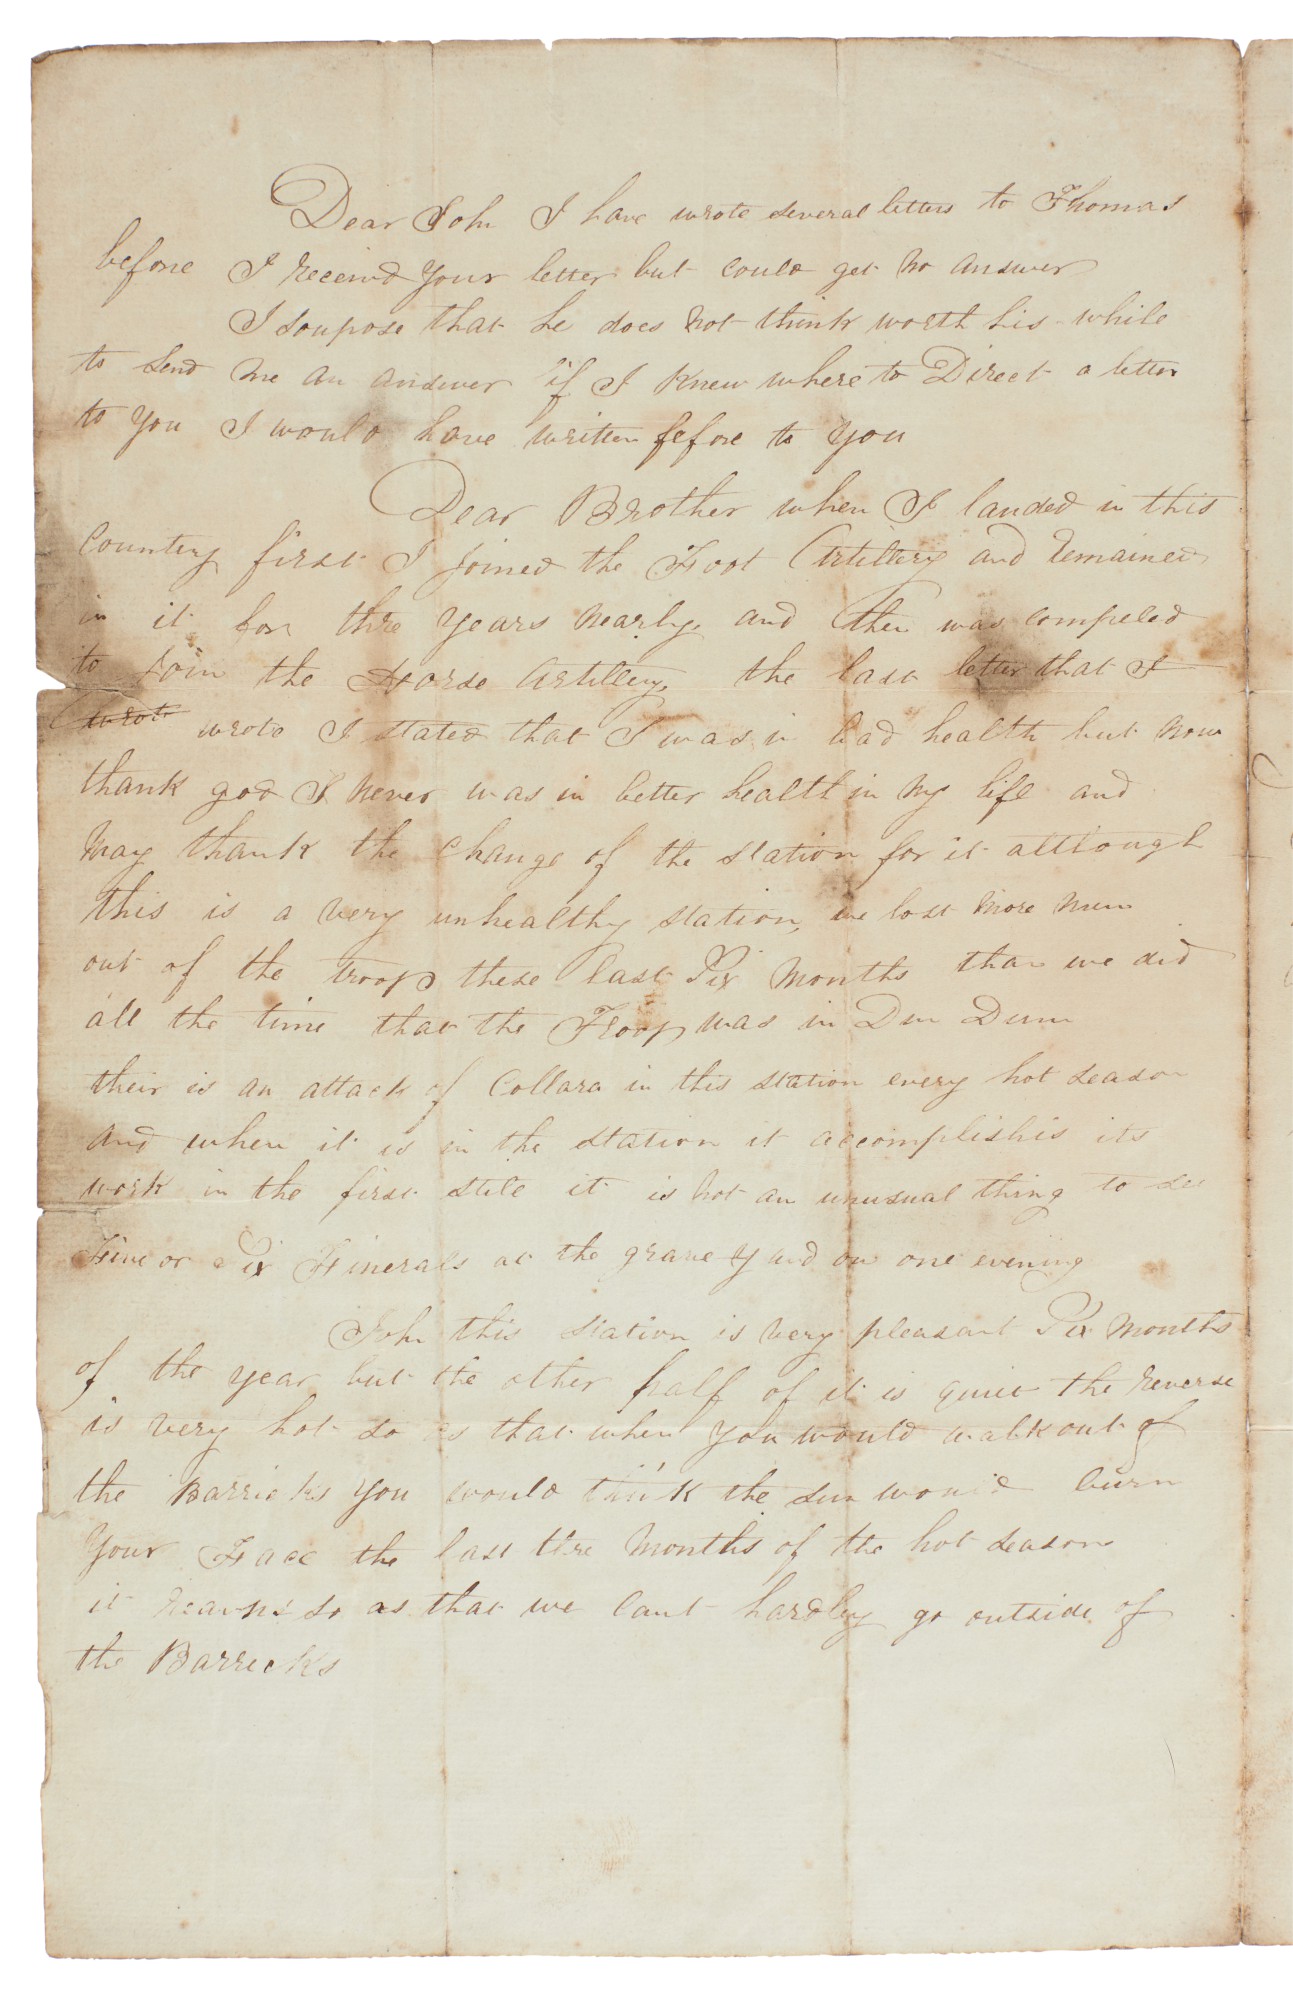 Dear John I have wrote several letters to Thomas
before I received your letter but could get no answer
I soupose that he does not think worth his while
to send me an answer if I knew where to Direct a letter
to you I would have written fefore to you
Dear Brother when I landed in this
Country first I joined the Foot Artillery and remained
in it for thre years nearly and then was compeled
to join the Horse Artillery the last letter that I
wrote wrote I stated that I was in bad health but now
thank god I never was in better health in my life and
may thank the change of the station for it although
this is a very unhealthy station, we lost more men
out of the troop these last Six months than we did
all the time that the Troop was in Dum Dum
their is an attack of Collara in this station every hot season
and when it is in the station it accomplishis its
work in the first stile it is not an unusual thing to see
Five or Six Finerals at the grave yard on one evening
John this station is very pleasant Six months
of the year but the other half of it is quiet the reverse
is very hot so as that when you would walk out of
the Barricks you would think the sun would burn
your Face the last thre months of the hot season
it so as that we cant hardley go outside of
the Barricks